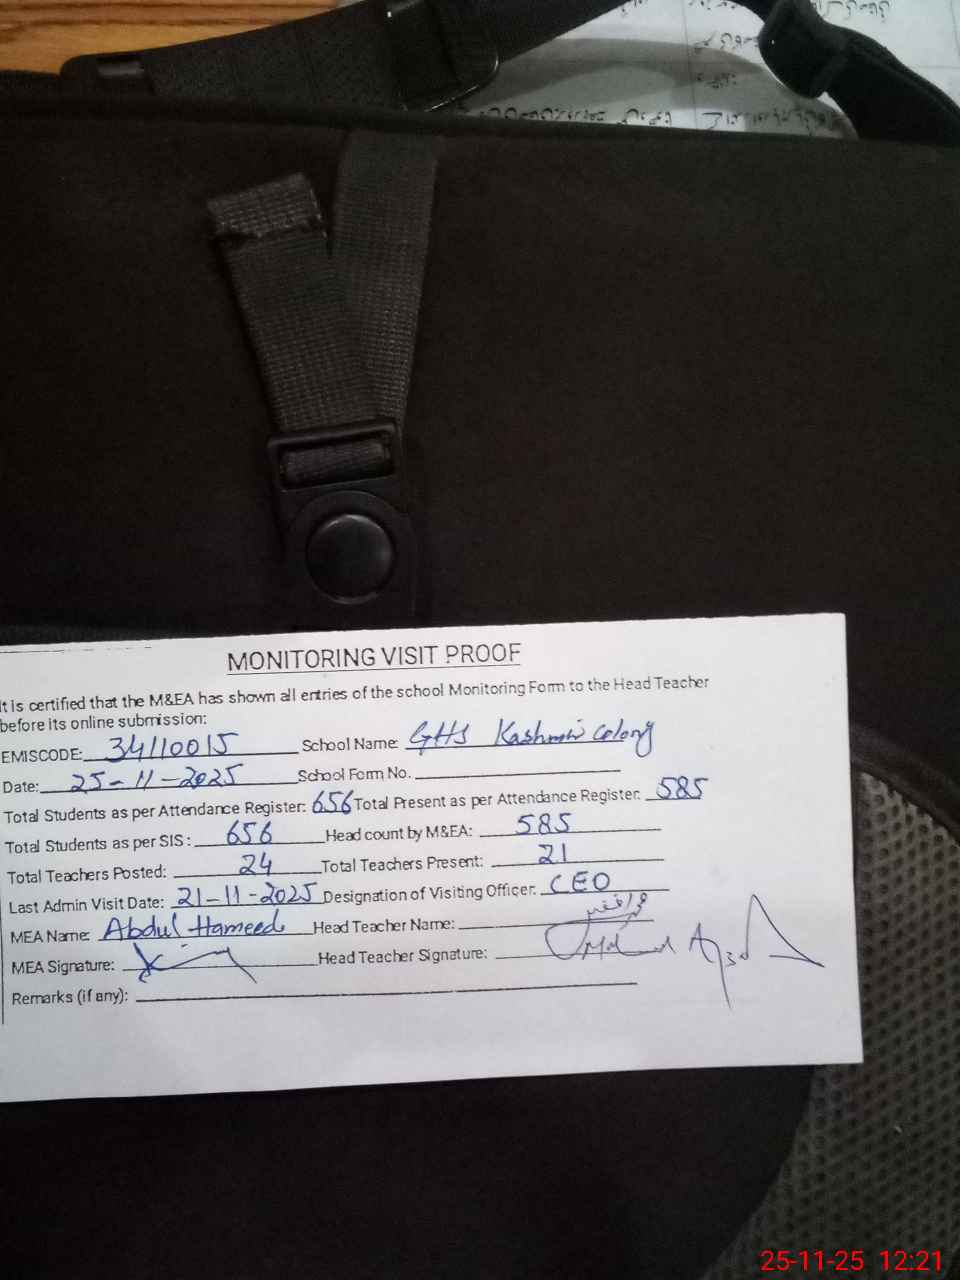 MONITORING VISIT PROOF
It is certified that the M&EA has shown all entries of the school Monitoring Form to the Head Teacher
before its online submission:
EMISCODE: 34110015 School Name: GHS Kashmir Colony
Date: 25-11-2025 School Form No.
Total Students as per Attendance Register: 656 Total Present as per Attendance Register: 585
Total Students as per SIS: 656 Head count by M&EA: 585
Total Teachers Posted: 24 Total Teachers Present: 21
Last Admin Visit Date: 21-11-2025 Designation of Visiting Officer: CEO
MEA Name: Abdul Hameed Head Teacher Name:
MEA Signature: Head Teacher Signature:
Remarks (if any):
25-11-25 12:21